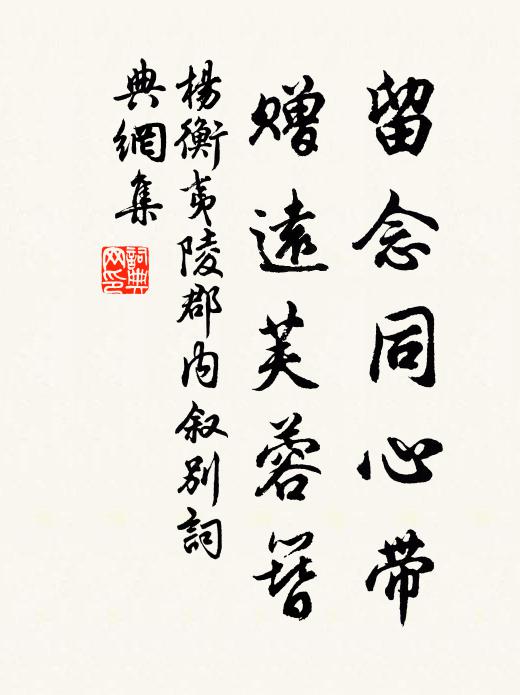 留念同心带
赠遠芙蓉簪
楊衡夷陵郡内叙别詞
典網集
詞典网印